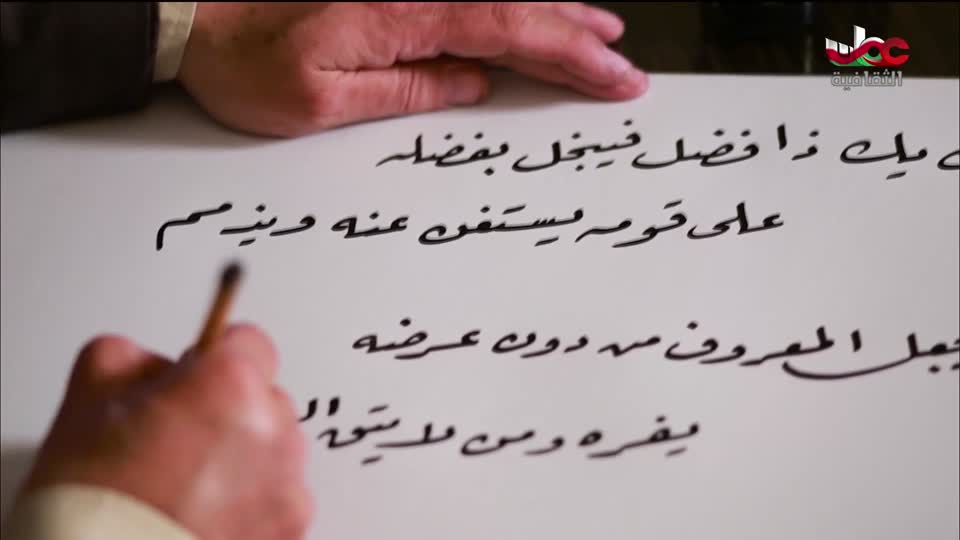 عمان
الثقافية
يك ذا فضل فيبخل بفضله
على قومه يستغن عنه ويذمم
يجعل المعروف من دون عرضه
يفره ومن لا يتق الـ